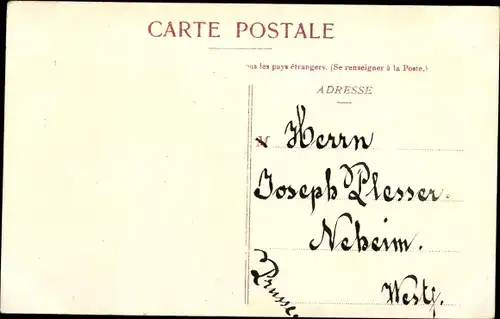 CARTE POSTALE
ous les pays étrangers. (Se renseigner à la Poste.)
ADRESSE
M Herrn
Joseph Plesser.
Neheim.
Westf.
Prusse.